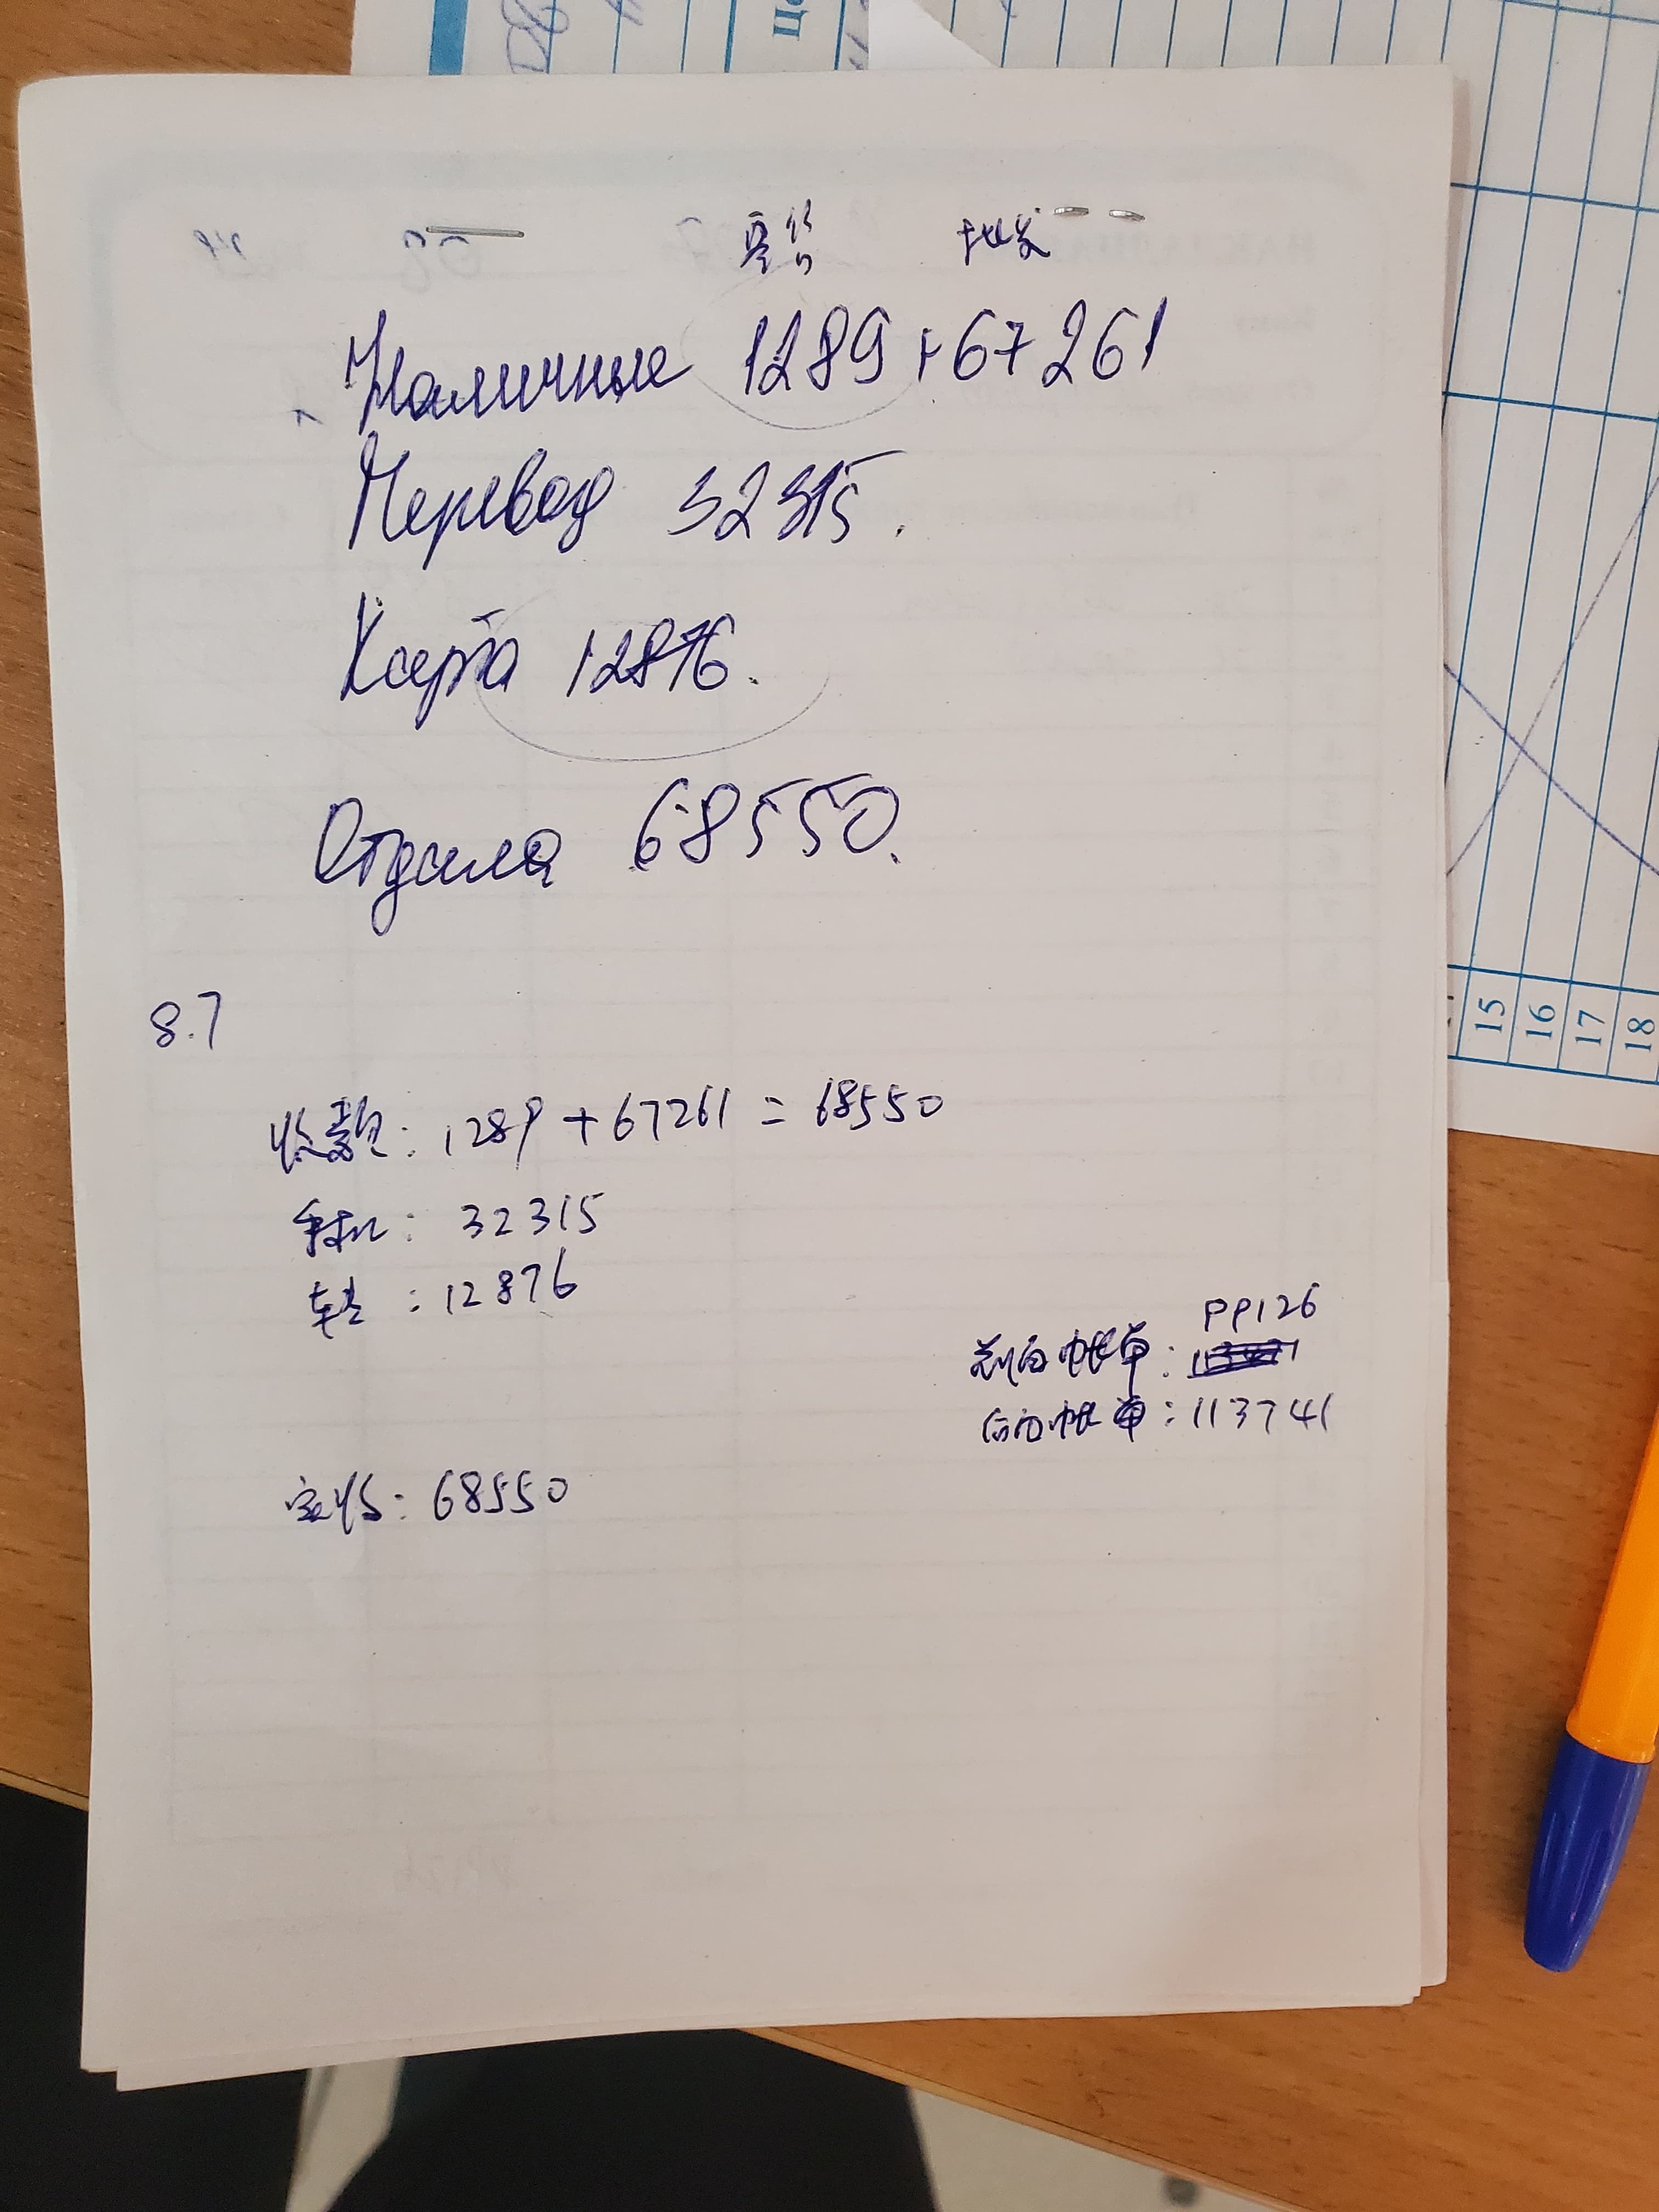 零售 批发
Наличные 1289+67261
Перевод 32315.
Карта 12876.
Отдала 68550.
8.7
收款: 1289+67261=68550
手机: 32315
卡: 12876
PP126
前面帐单:
后面帐单: 113741
实收: 68550
15
16
17
18